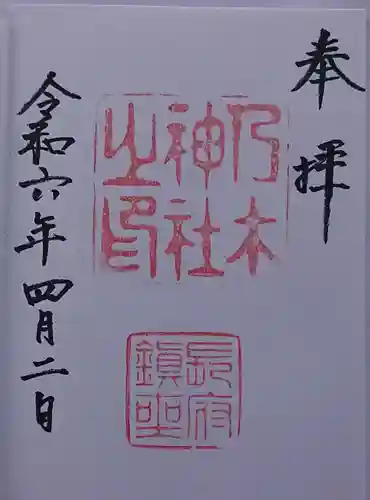 奉拝
乃木
神社
之印
長府
鎮座
令和六年四月二日